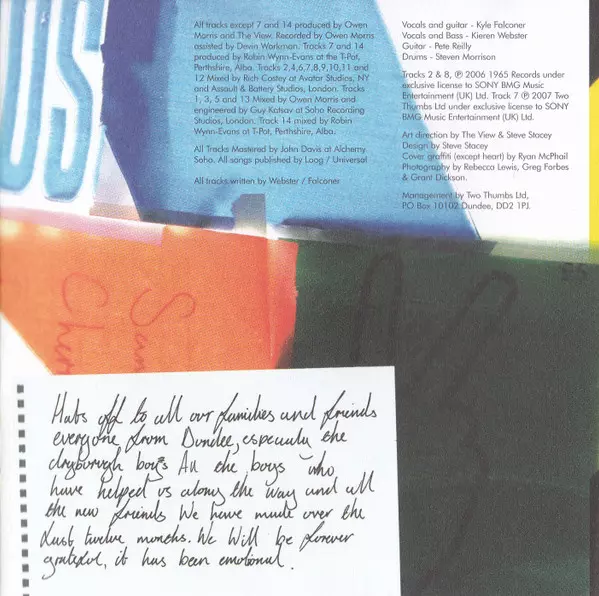 US
All tracks except 7 and 14 produced by Owen
Morris and The View. Recorded by Owen Morris
assisted by Devin Workman. Tracks 7 and 14
produced by Robin Wynn-Evans at the T-Pot,
Perthshire, Alba. Tracks 2,4,6,7,8,9,10,11 and
12 Mixed by Rich Costey at Avatar Studios, NY
and Assault & Battery Studios, London. Tracks
1, 3, 5 and 13 Mixed by Owen Morris and
engineered by Guy Katsav at Soho Recording
Studios, London. Track 14 mixed by Robin
Wynn-Evans at T-Pot, Perthshire, Alba.
All Tracks Mastered by John Davis at Alchemy
Soho. All songs published by Loog / Universal
All tracks written by Webster / Falconer
Vocals and guitar - Kyle Falconer
Vocals and Bass - Kieren Webster
Guitar - Pete Reilly
Drums - Steven Morrison
Tracks 2 & 8, ℗ 2006 1965 Records under
exclusive license to SONY BMG Music
Entertainment (UK) Ltd. Track 7 ℗ 2007 Two
Thumbs Ltd under exclusive license to SONY
BMG Music Entertainment (UK) Ltd.
Art direction by The View & Steve Stacey
Design by Steve Stacey
Cover graffiti (except heart) by Ryan McPhail
Photography by Rebecca Lewis, Greg Forbes
& Grant Dickson.
Management by Two Thumbs Ltd,
PO Box 10102 Dundee, DD2 1PJ.
Hats off to all our families and friends
everyone from Dundee, especially the
dryburgh boys All the boys who
have helped us along the way and all
the new friends We have made over the
last twelve months. We Will be forever
grateful, it has been emotional.